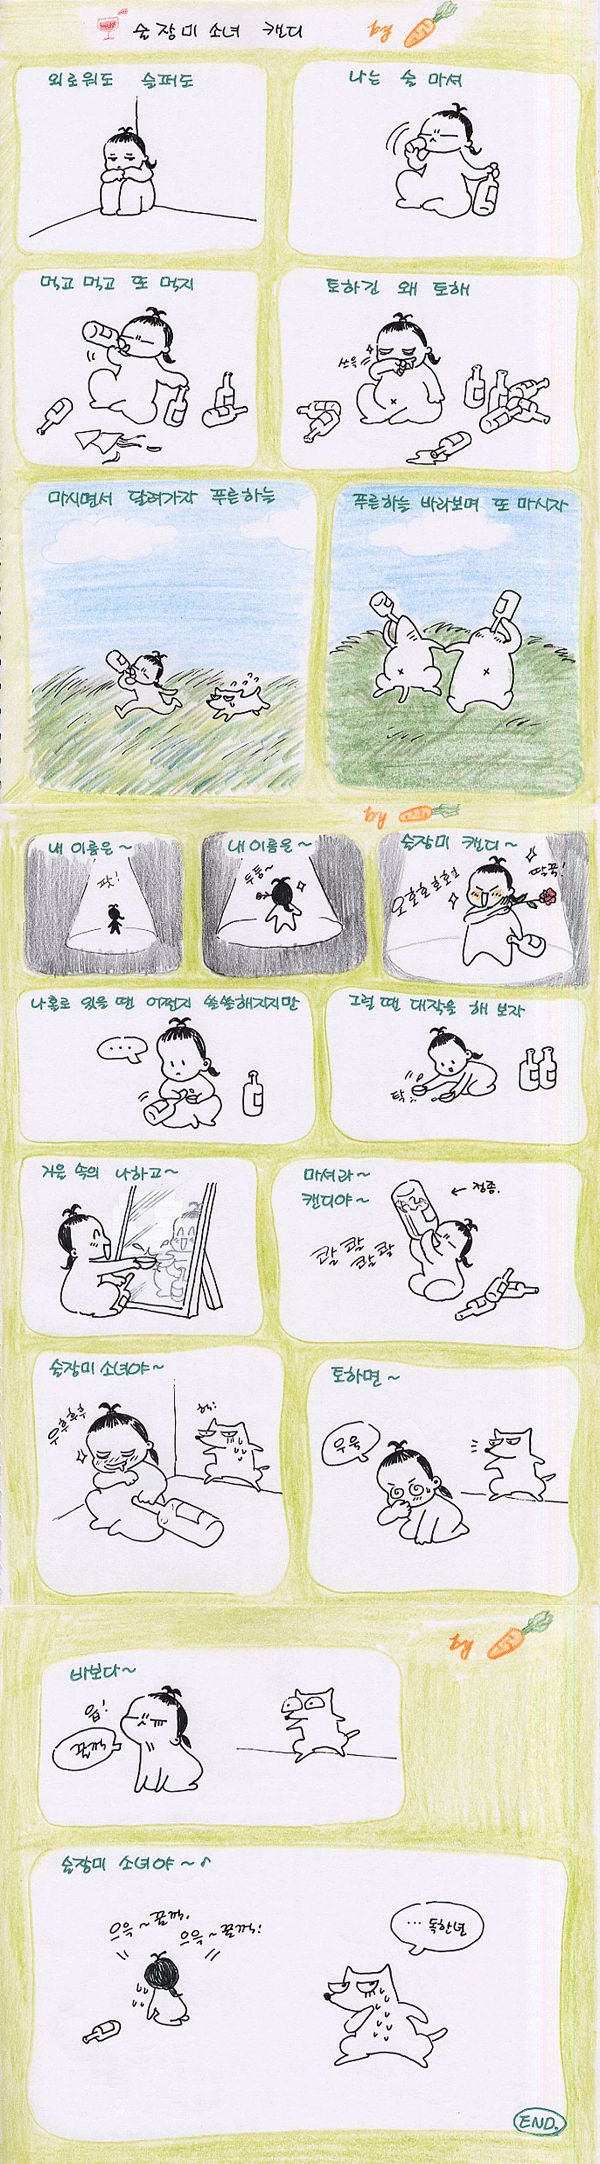 술장미소녀 캔디
by
외로워도 슬퍼도
나는 술 마셔
먹고 먹고 또 먹지
토하긴 왜 토해
쓰윽
마시면서 달려가자 푸른하늘
푸른하늘 바라보며 또 마시자
by
내 이름은~
팟!
내 이름은~
두둥~
술장미 캔디~
오호호호호호
딸꾹!
나홀로 있을 땐 어쩐지 쓸쓸해지지만
...
그럴 땐 대작을 해 보자
탁
거울 속의 나하고~
마셔라~
캔디야~
← 정종.
콸콸
콸콸
술장미 소녀야~
우후후후
헉!
토하면~
우욱
by
바보다~
읍!
꿀꺽
술장미 소녀야~♪
으윽~꿀꺽.
으윽~꿀꺽!
... 독한년
END.